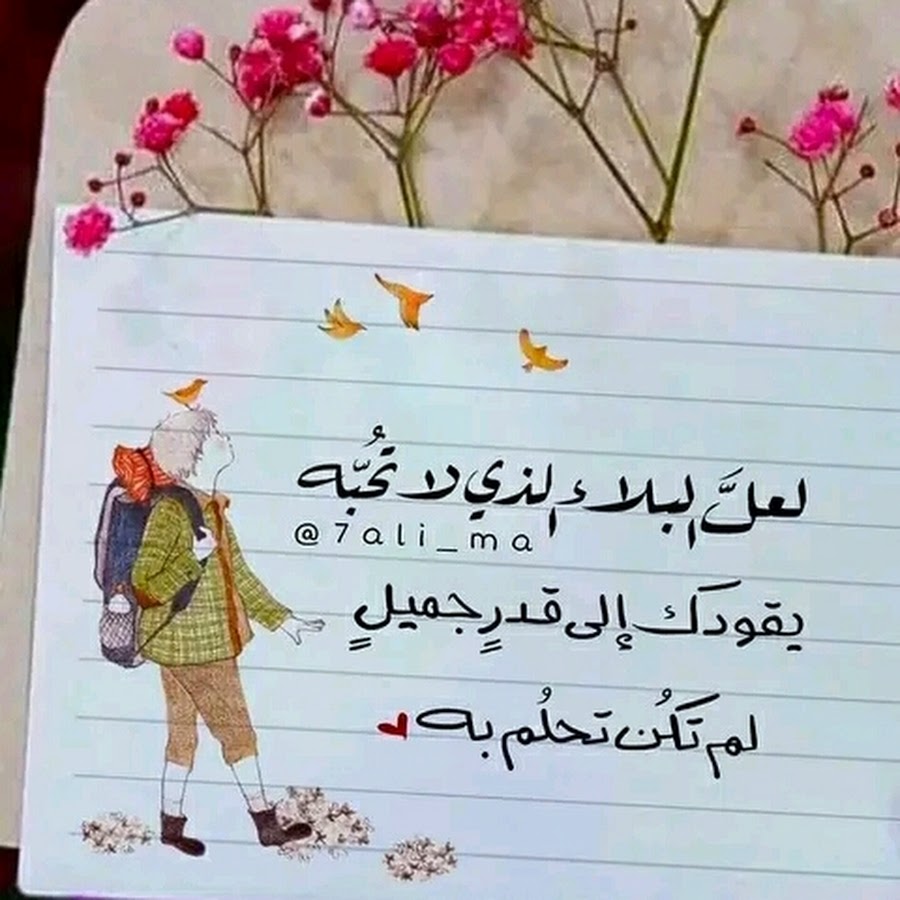 لعلَّ البلاء الذي لا تُحبّه
@7ali_ma
يقودك إلى قدرٍ جميلٍ
لم تكُن تحلُم به